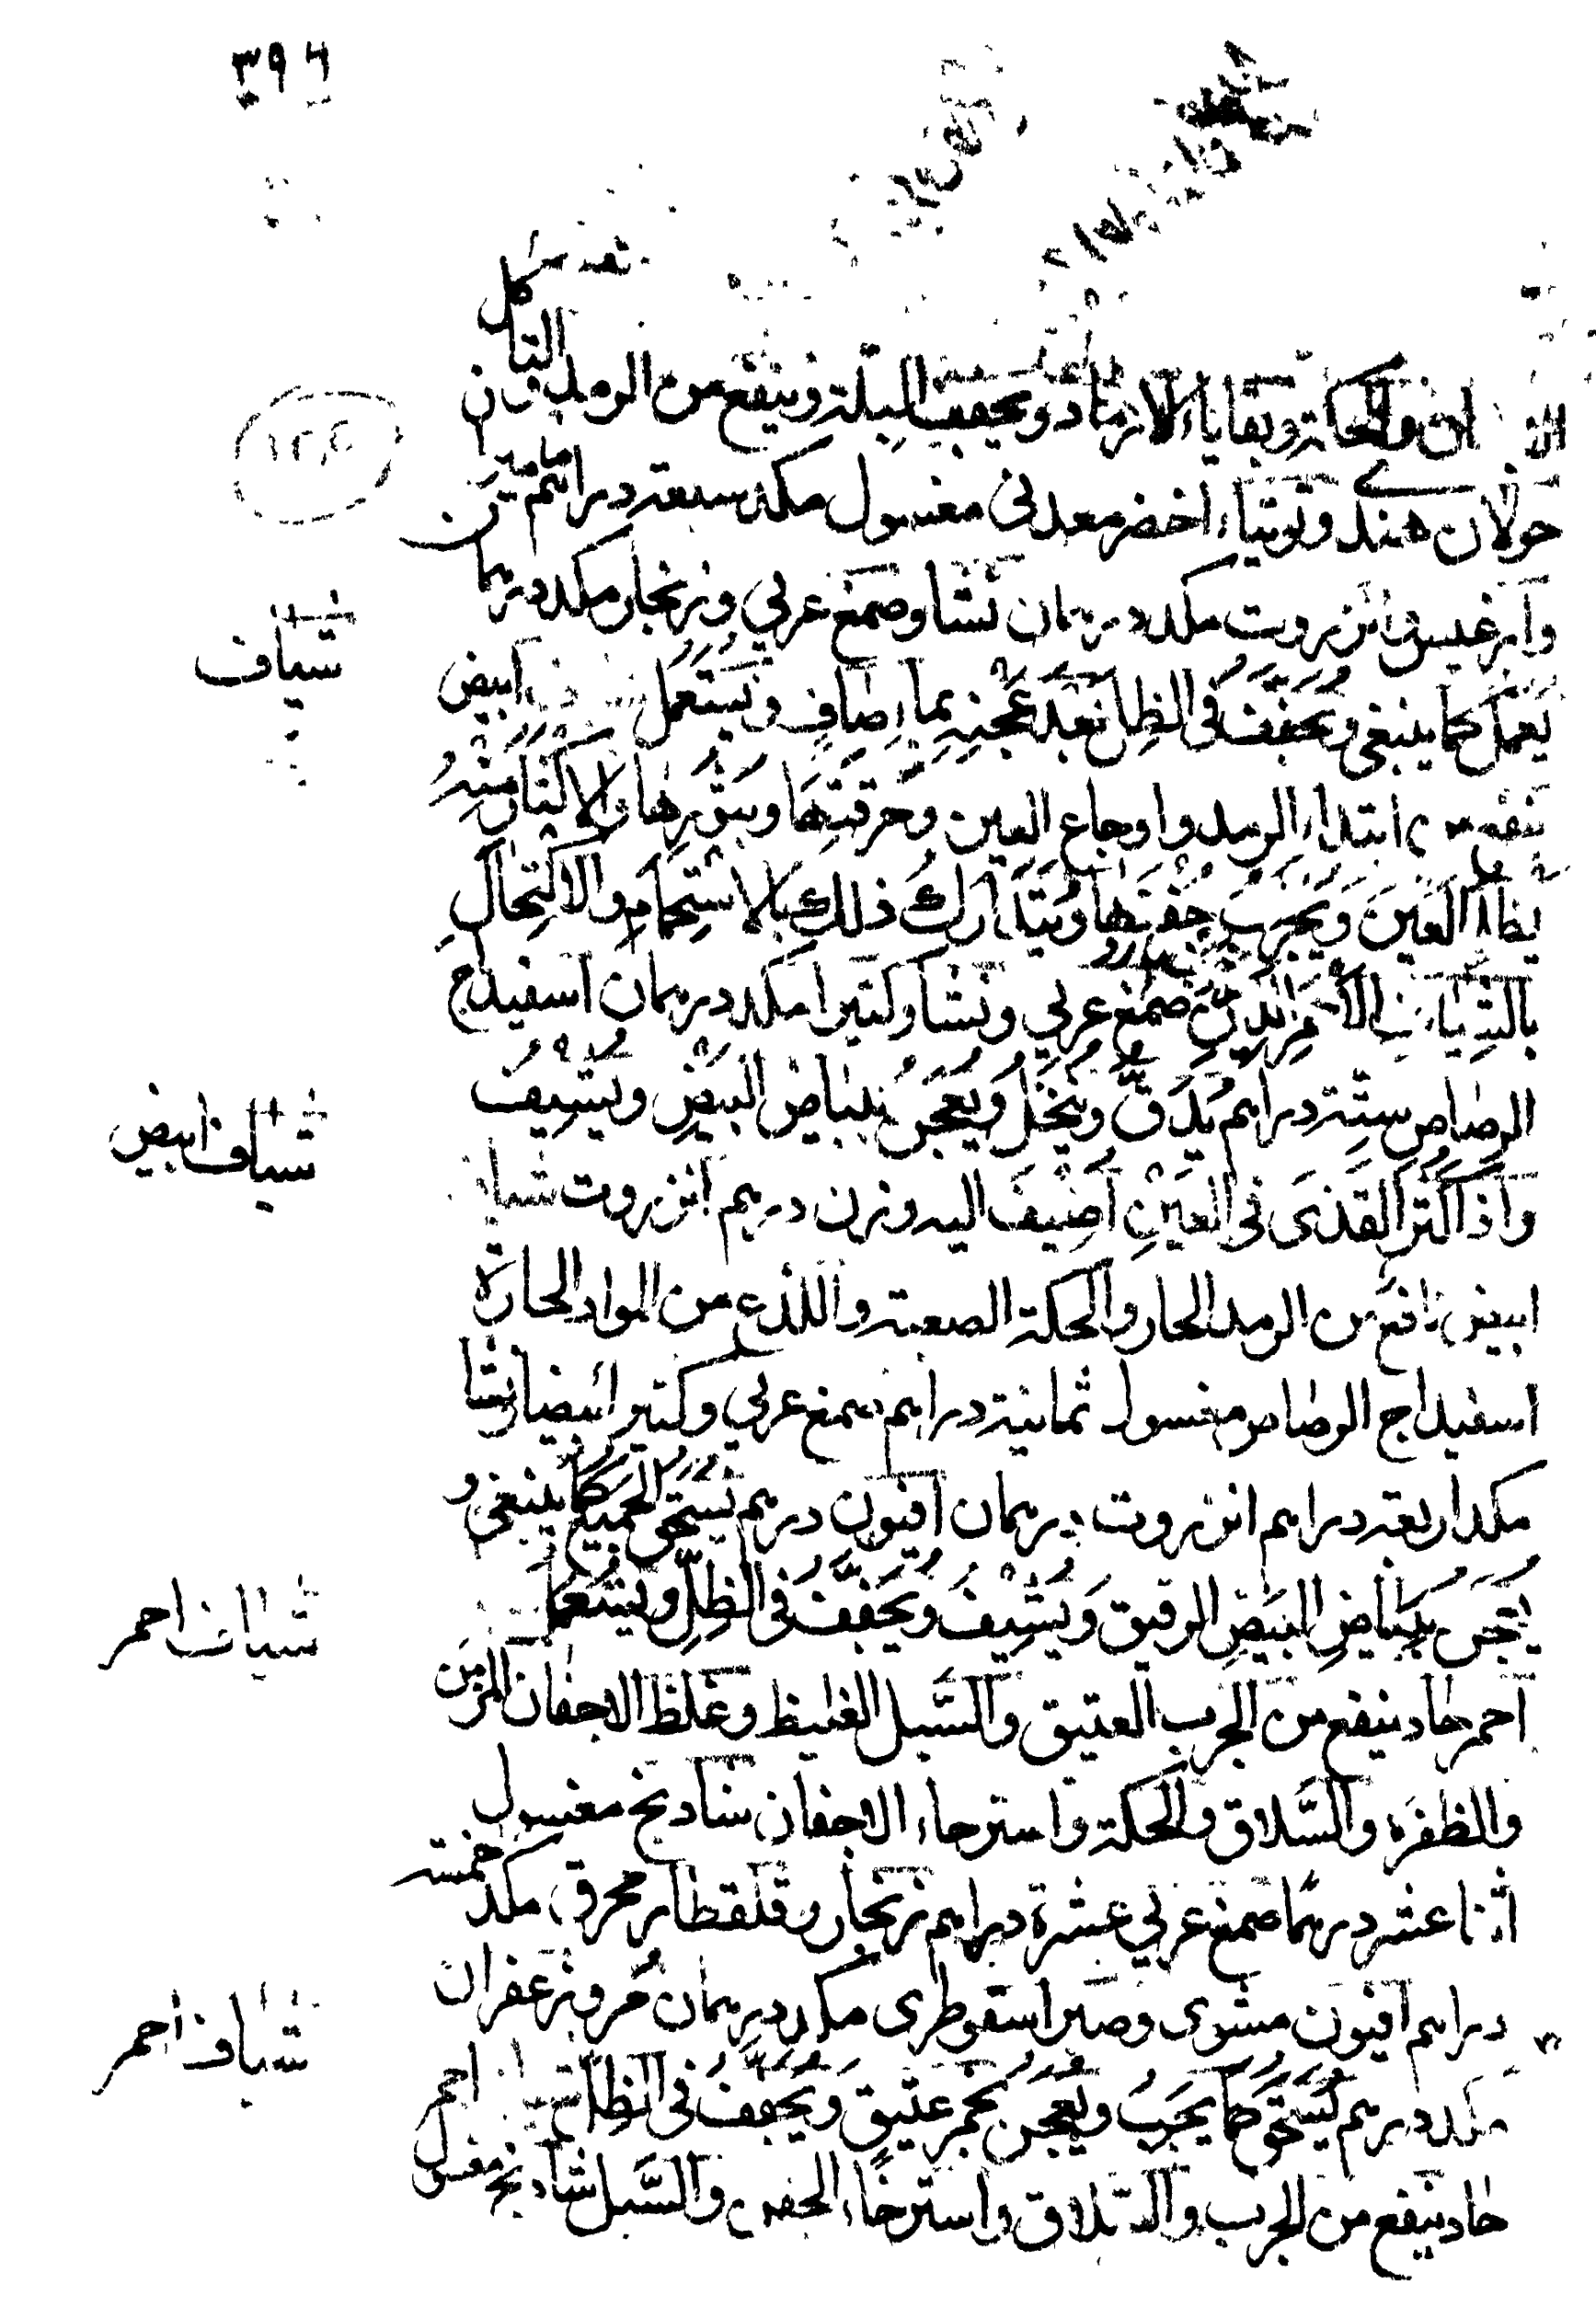 ٣٩٦
التاكل
والحكة وبقايا الارماد ويجفف البلة وينفع من الرمد
حولان هندي وتوتياء اخضر معدني مغسول مكد سبعة دراهم ماميران
وابرغيس وانزروت مكد درهمان نشا وصمغ عربي وزنجار مكد درهما
يُعمَل كما ينبغي ويُجفَّفُ في الظِل بَعدَ عَجنِهِ بماءٍ صَافٍ ويُستَعمَل ابيض
شياف
ابتداء الرمد واوجاع العين وحرقتِهَا وبثورِهَا والاكثار مِنْهُ
العَينَ ويُجَرِّبُ جَفْنَهَا ويُتَدَارَكُ ذلك بالاستِحمَامِ والاكتِحَالِ
صمغ عربي ونشا وكثيرا مكد درهمان اسفيداج
الرصاص ستة دراهم يُدَقُّ ويُنخَلُ ويُعجَنُ ببَياضِ البَيضِ ويُشيفُ
شياف ابيض
واذا كثُرَ القَذَى في العَيْنِ اُضِيفَ اليه وزن درهم انزروت شياف
ابيض نافع من الرمد الحار والحكة الصعبة واللذع من المواد الحارة
اسفيداج الرصاص مغسول ثمانية دراهم صمغ عربي وكثيرا بيضا ونشا
مكد اربعة دراهم انزروت درهمان افيون درهم يُسْحَقُ الجَمِيعُ كَمَا ينبغي و
يُعجَن ببَياضِ البَيضِ الرقيق ويُشِيفُ ويُجَفَّفُ في الظِلِّ ويُستَعمَل
شياف احمر
احمر حاد ينفع من الجرب العتيق والسَّبل الغليظ وغلظ الاجفان المزمن
والظفَره والسَّلاق والحكة واسترخاء الاجفان شادنج مغسول
اثنا عشر درهمًا صمغ عربي عشرة دراهم زنجار وقلقطار محرق مكد خمسة
دراهم افيون مشوى وصبر اسقوطرى مكد درهمان مُر وزعفران
شياف احمر
مكد درهم يُسْحَق كما يَجِبُ ويُعجَن بخمر عتيق ويُجفَّفُ في الظِل شياف احمر
حاد ينفع من الجرب والسلاق واسترخاء الجفن والسَّبل شادنج مغسول